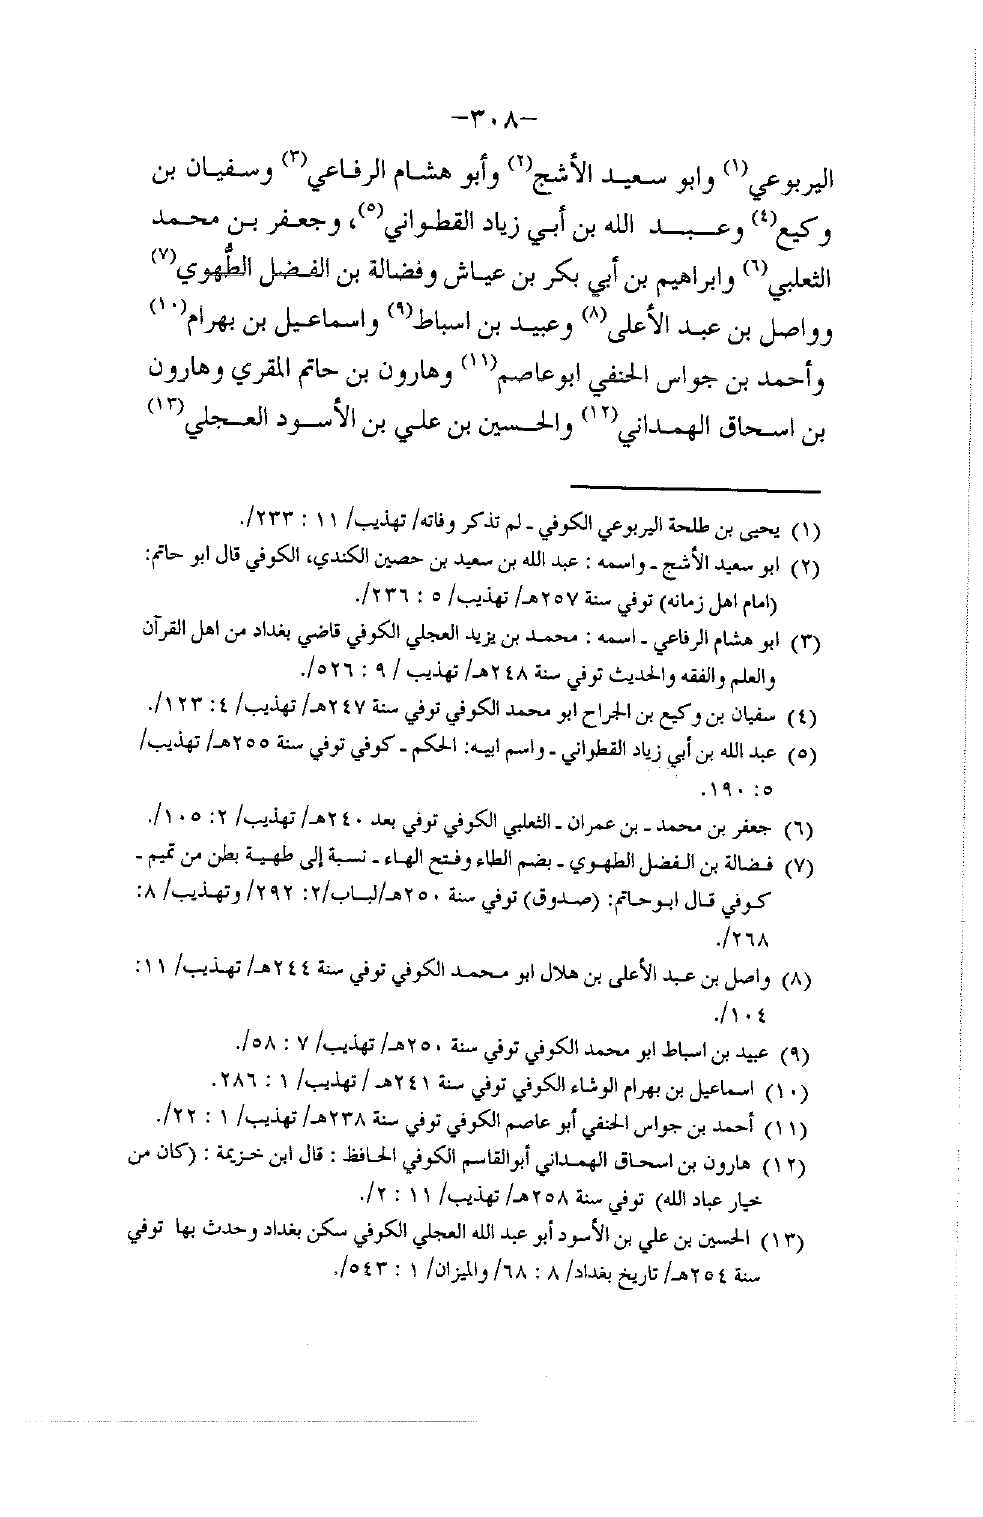 –٣٠٨–
اليربوعي(١) وابو سعيد الأشج(٢) وأبو هشام الرفاعي(٣) وسفيان بن
وكيع(٤) وعبد الله بن أبي زياد القطواني(٥)، وجعفر بن محمد
الثعلبي(٦) وابراهيم بن أبي بكر بن عياش وفضالة بن الفضل الطُّهوي(٧)
وواصل بن عبد الأعلى(٨) وعبيد بن اسباط(٩) واسماعيل بن بهرام(١٠)
وأحمد بن جواس الحنفي ابوعاصم(١١) وهارون بن حاتم المقري وهارون
بن اسحاق الهمداني(١٢) والحسين بن علي بن الأسود العجلي(١٣)
(١) يحيى بن طلحة اليربوعي الكوفي ـ لم تذكر وفاته/ تهذيب/ ١١ : ٢٣٣/.
(٢) ابو سعيد الأشج ـ واسمه : عبد الله بن سعيد بن حصين الكندي، الكوفي قال ابو حاتم:
(امام اهل زمانه) توفي سنة ٢٥٧هـ/ تهذيب/ ٥ : ٢٣٦/.
(٣) ابو هشام الرفاعي ـ اسمه : محمد بن يزيد العجلي الكوفي قاضي بغداد من اهل القرآن
والعلم والفقه والحديث توفي سنة ٢٤٨هـ/ تهذيب / ٩ : ٥٢٦/.
(٤) سفيان بن وكيع بن الجراح ابو محمد الكوفي توفي سنة ٢٤٧هـ/ تهذيب/ ٤: ١٢٣/.
(٥) عبد الله بن أبي زياد القطواني ـ واسم ابيه: الحكم ـ كوفي توفي سنة ٢٥٥هـ/ تهذيب/
٥: ١٩٠.
(٦) جعفر بن محمد ـ بن عمران ـ الثعلبي الكوفي توفي بعد ٢٤٠هـ/ تهذيب/ ٢: ١٠٥/.
(٧) فضالة بن الفضل الطهوي ـ بضم الطاء وفتح الهاء ـ نسبة إلى طهية بطن من تميم ـ
كوفي قال ابوحاتم: (صدوق) توفي سنة ٢٥٠هـ/لباب/٢: ٢٩٢/ وتهذيب/ ٨:
٢٦٨/.
(٨) واصل بن عبد الأعلى بن هلال ابو محمد الكوفي توفي سنة ٢٤٤هـ/ تهذيب/ ١١:
١٠٤/.
(٩) عبيد بن اسباط ابو محمد الكوفي توفي سنة ٢٥٠هـ/ تهذيب/ ٧ : ٥٨/.
(١٠) اسماعيل بن بهرام الوشاء الكوفي توفي سنة ٢٤١هـ / تهذيب/ ١ : ٢٨٦.
(١١) أحمد بن جواس الحنفي أبو عاصم الكوفي توفي سنة ٢٣٨هـ/ تهذيب/ ١ : ٢٢/.
(١٢) هارون بن اسحاق الهمداني أبوالقاسم الكوفي الحافظ : قال ابن خزيمة : (كان من
خيار عباد الله) توفي سنة ٢٥٨هـ/ تهذيب/ ١١ : ٢/.
(١٣) الحسين بن علي بن الأسود أبو عبد الله العجلي الكوفي سكن بغداد وحدث بها توفي
سنة ٢٥٤هـ/ تاريخ بغداد/ ٨ : ٦٨/ والميزان/ ١ : ٥٤٣/.